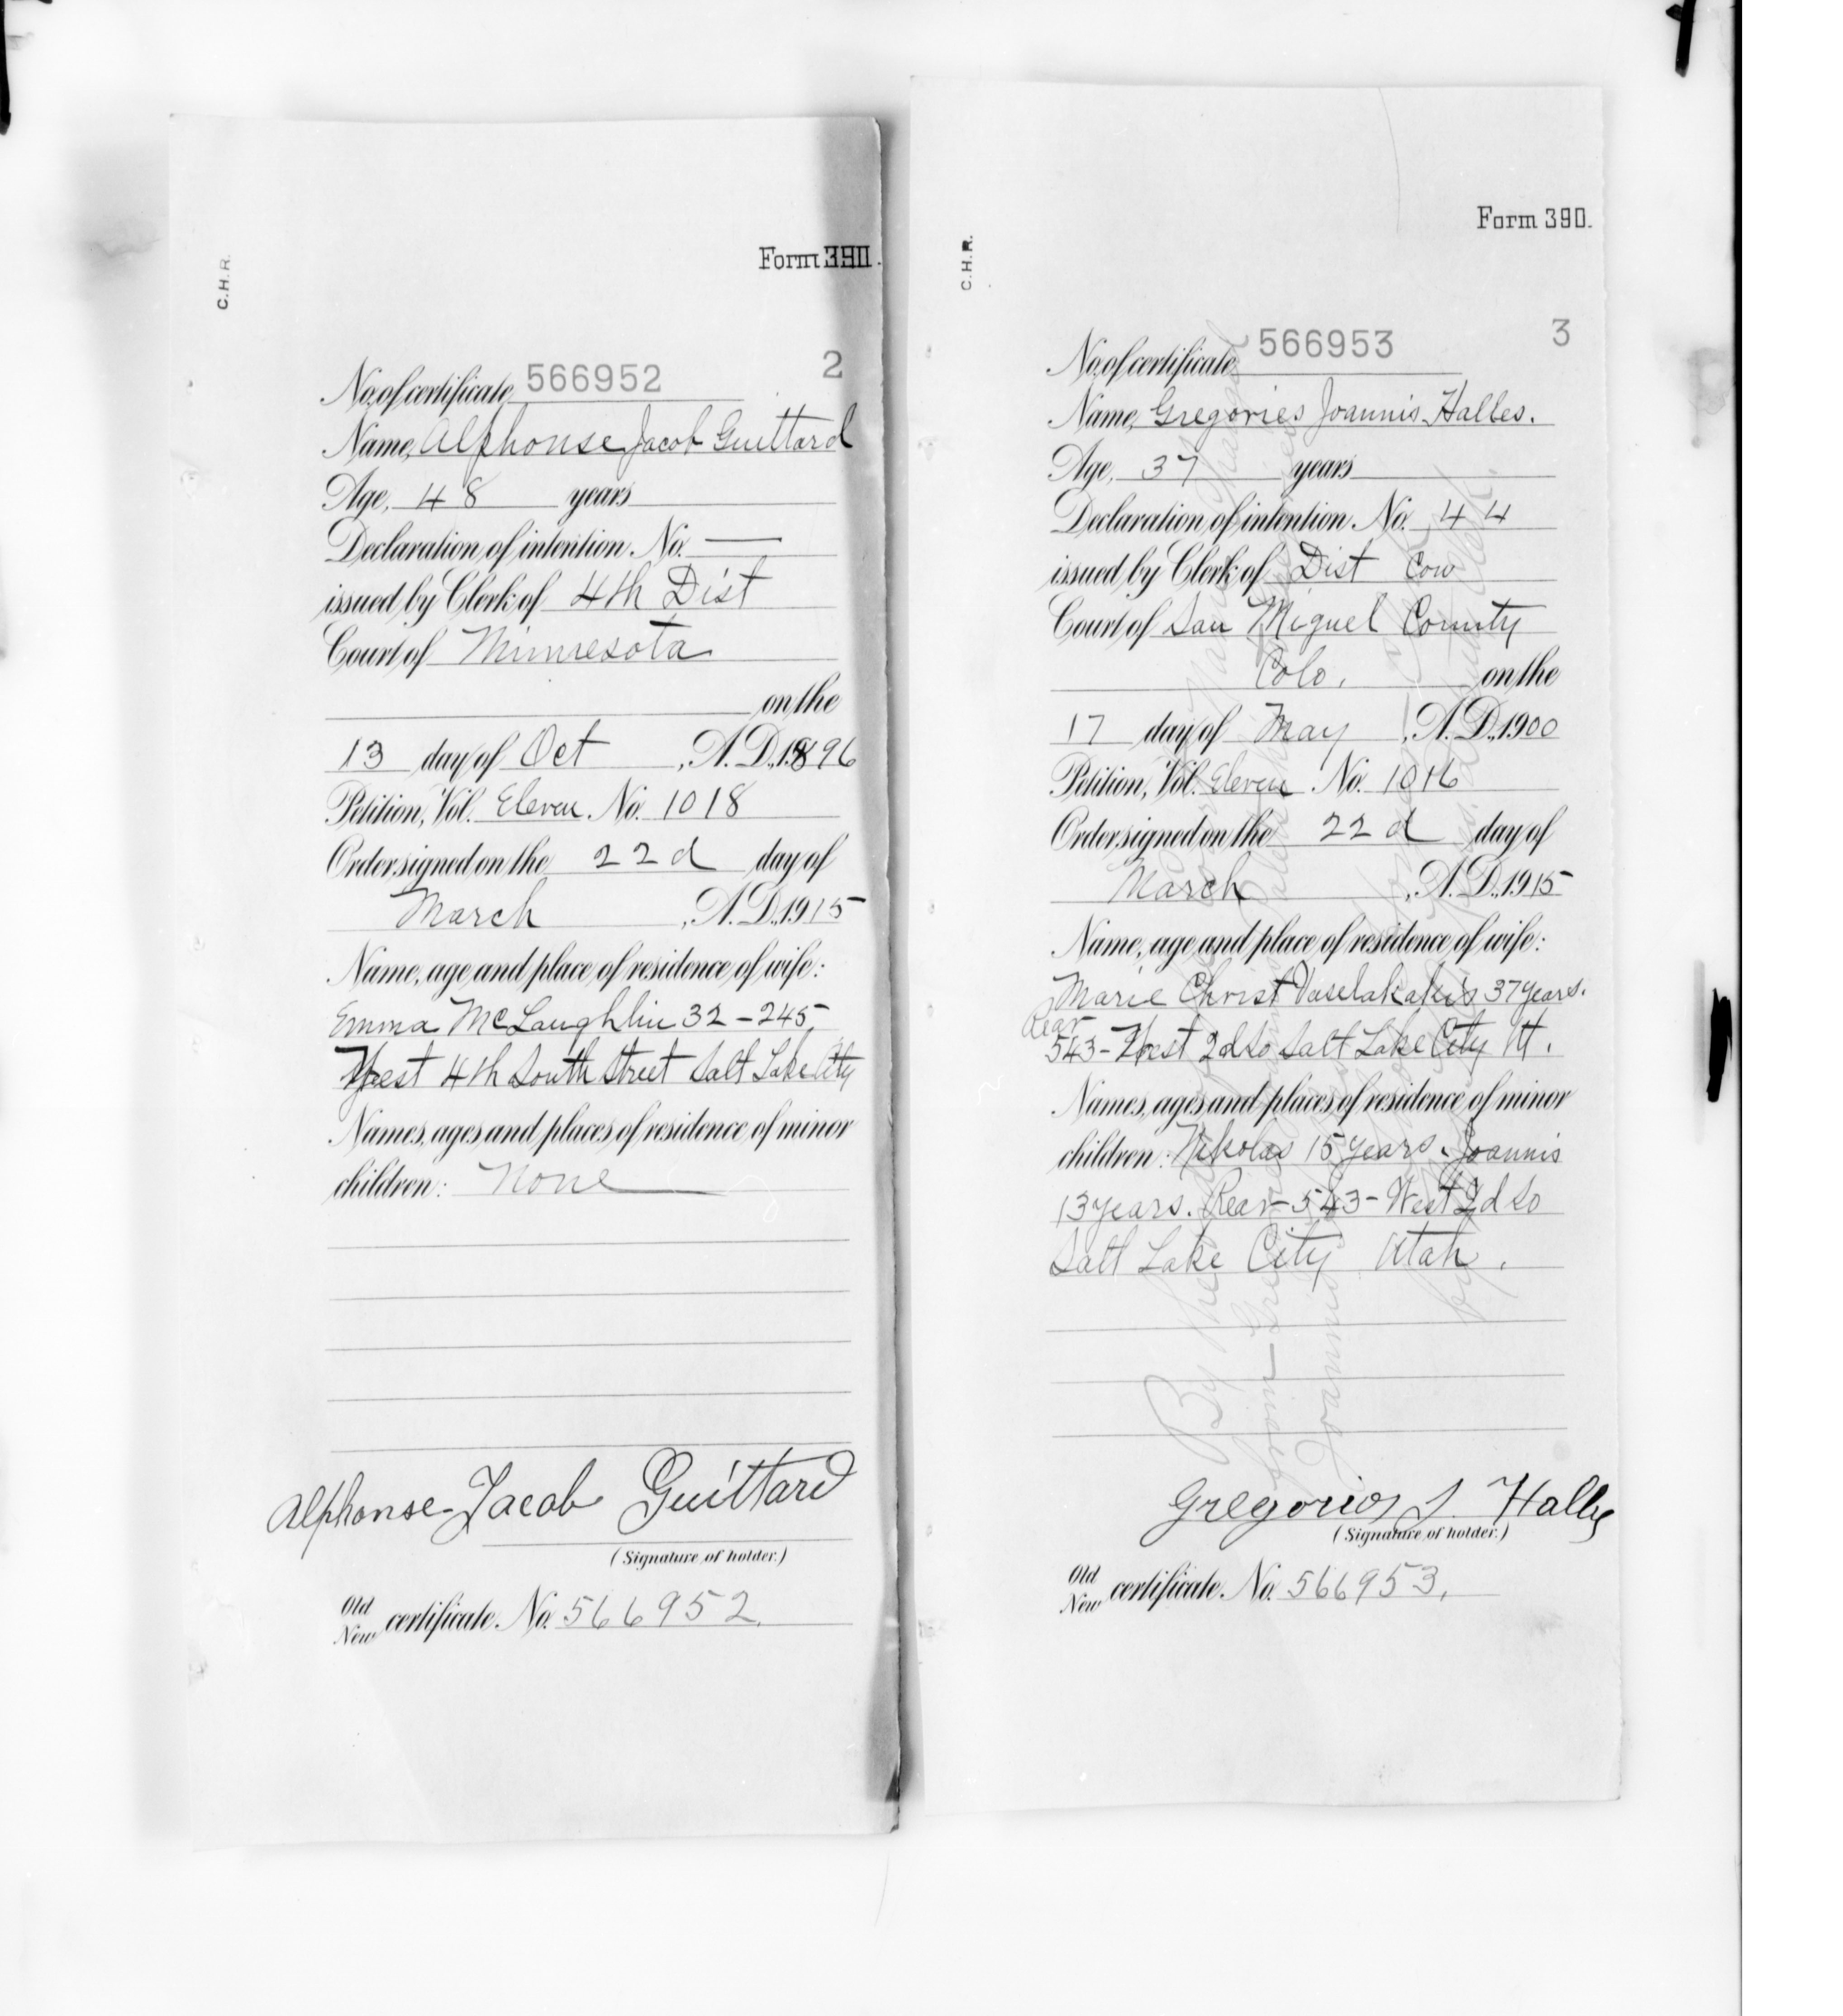 C.H.R.
Form 390.
No. of certificate, 566952 2
Name, Alphonse Jacob Guittard
Age, 48 years
Declaration of intention No. —
issued by Clerk of 4th Dist
Court of Minnesota
on the
13 day of Oct , A.D. 1896
Petition, Vol. Eleven No. 1018
Order signed on the 22d day of
March , A.D. 1915
Name, age and place of residence of wife:
Emma McLaughlin 32 - 245
West 4th South Street Salt Lake City
Names, ages and places of residence of minor
children: None
Alphonse Jacob Guittard
(Signature of holder.)
Old
New certificate No. 566952.
C.H.R.
Form 390.
No. of certificate, 566953 3
Name, Gregories Joannis Halles.
Age, 37 years
Declaration of intention No. 44
issued by Clerk of Dist Cou
Court of San Miguel County
Colo. on the
17 day of May , A.D. 1900
Petition, Vol. Eleven No. 1016
Order signed on the 22d day of
March , A.D. 1915
Name, age and place of residence of wife:
Marie Christ Vaselakakis 37 years.
Rear
543 - West 2d So Salt Lake City Ut.
Names, ages and places of residence of minor
children: Nikolas 15 years. Joannis
13 years. Rear - 543 - West 2d So
Salt Lake City Utah.
Gregorios J. Halles
(Signature of holder.)
Old
New certificate No. 566953.